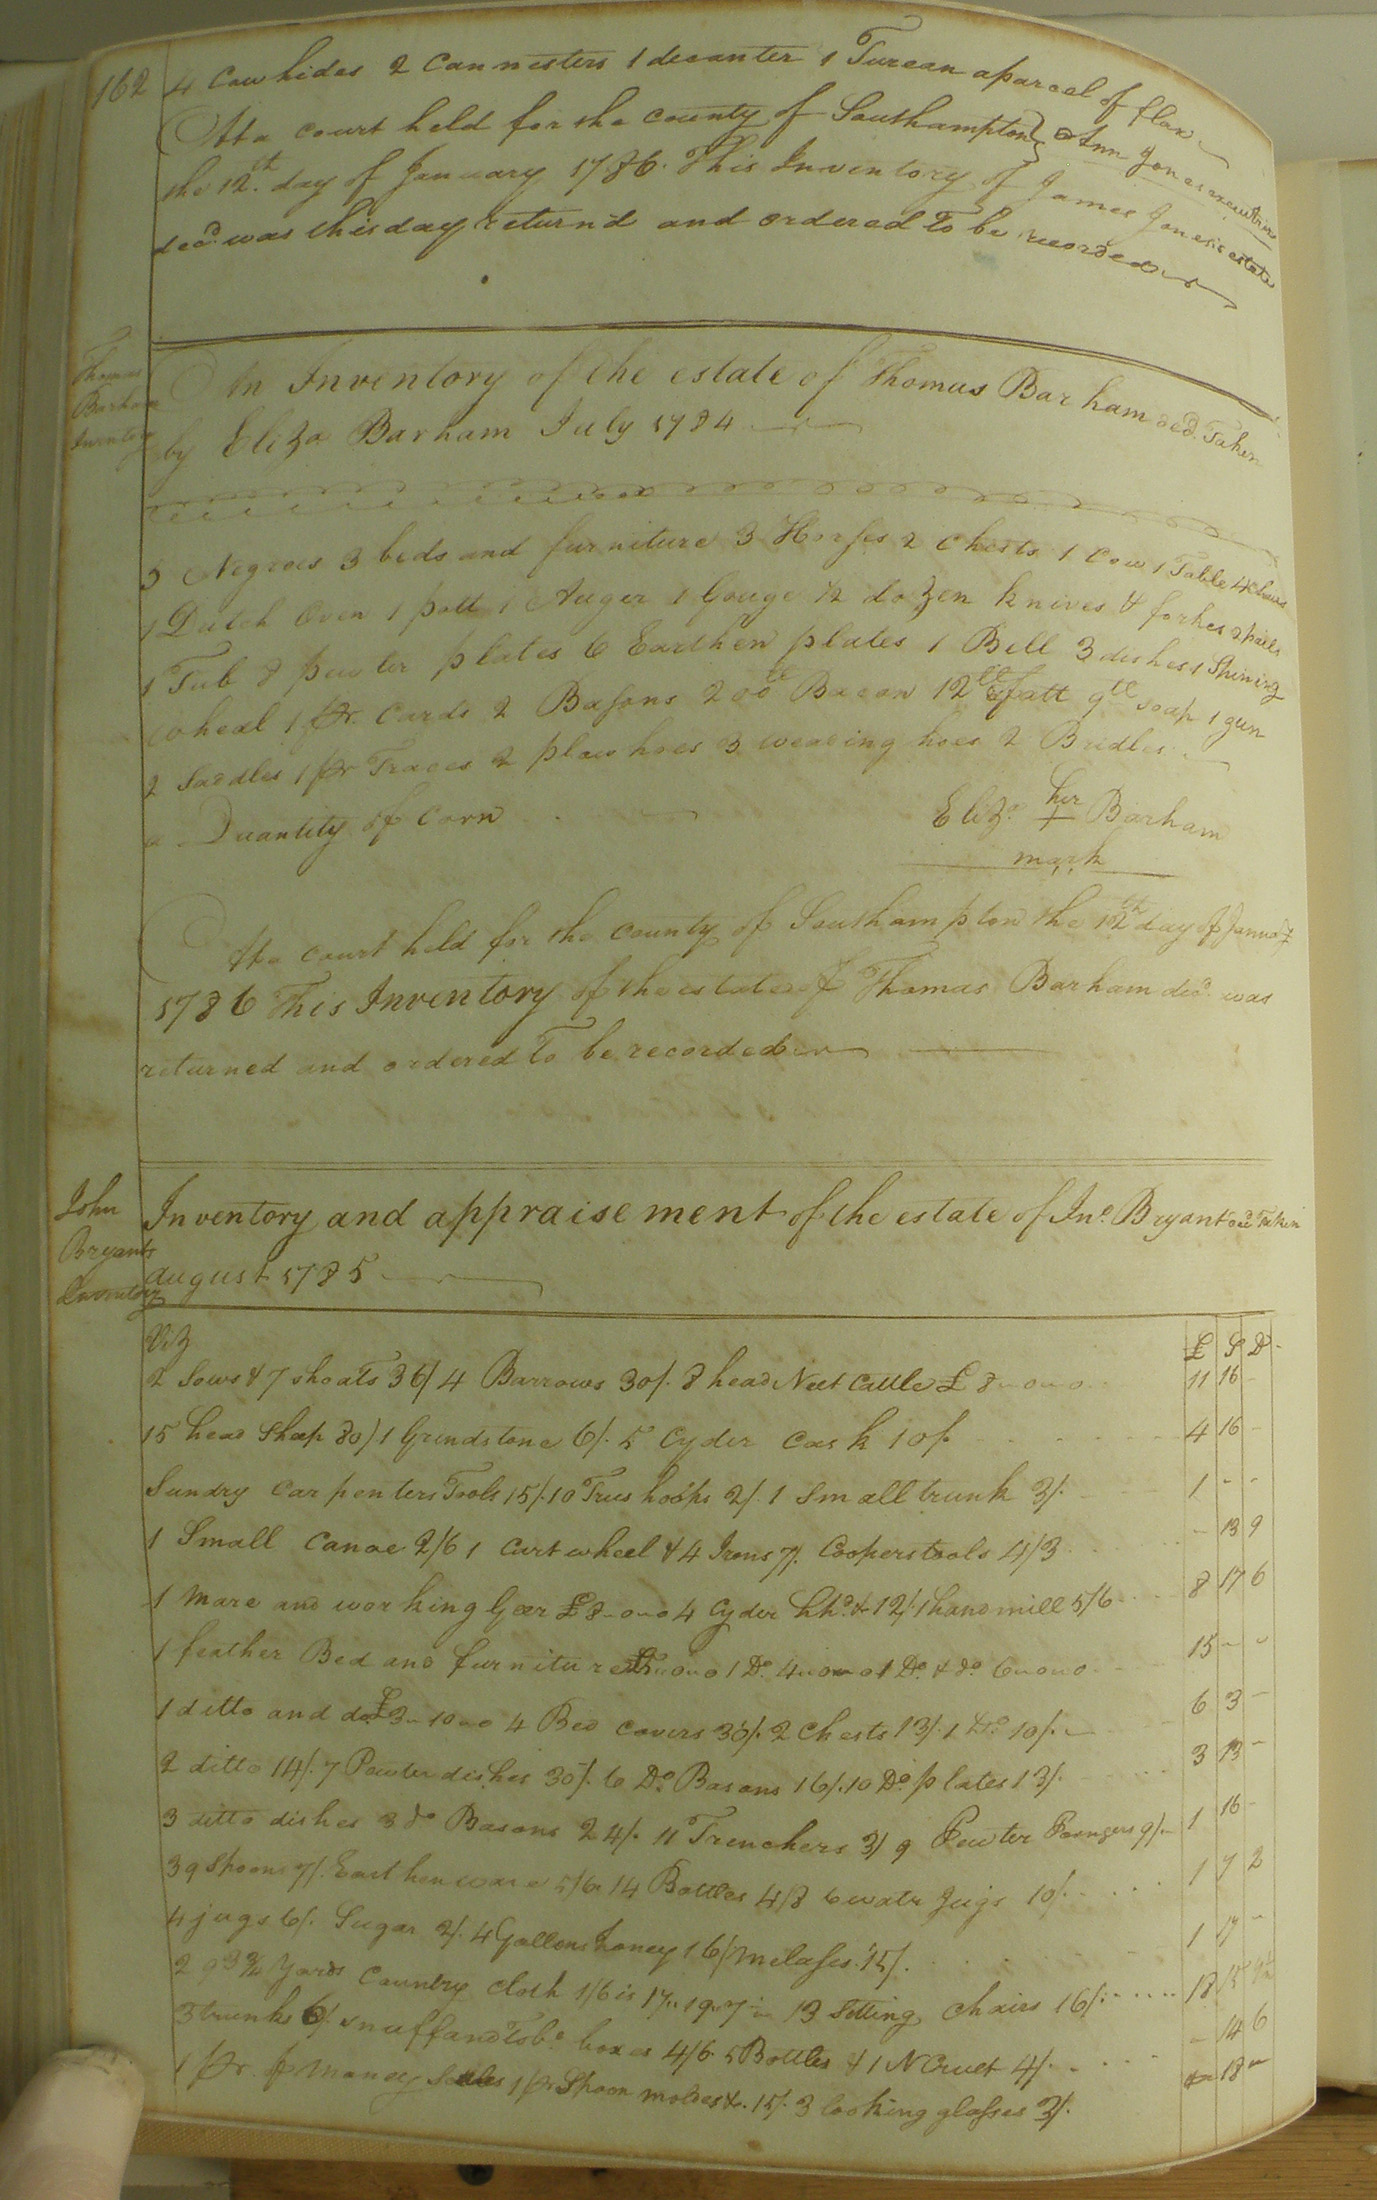 162 4 Cow hides 2 Cannesters 1 decanter 1 Turean a parcel of flax
At a court held for the county of Southampton } Ann Jones executrix
the 12th day of January 1786. This Inventory of James Jones's estate
decd. was this day return'd and ordered To be recorded
Thomas
Barham
Inventory
An Inventory of the estate of Thomas Barham decd. Taken
by Eliza Barham July 1784
5 Negroes 3 beds and furniture 3 Horses 2 Chests 1 Cow 1 Table 4 chairs
1 Dutch Oven 1 pott 1 Auger 1 Gouge ½ dozen knives & forkes 2 pails
1 Tub 8 pewter plates 6 Earthen plates 1 Bell 3 dishes 1 Spining
wheal 1 pr. Cards 2 Basons 200ll Bacon 12ll fatt 9ll soap 1 gun
2 Saddles 1 pr Traces 2 plow hoes 3 weading hoes 2 Bridles
a Quantity of Corn
Eliza. her + Barham
mark
At a court held for the county of Southampton the 12th day of January
1786 This Inventory of the estate of Thomas Barham decd. was
returned and ordered To be recorded
John
Bryants
Inventory
Inventory and appraisement of the estate of Jno. Bryant decd Taken
august 1785
Viz £ S D
2 Sows & 7 shoats 36/ 4 Barrows 30/. 8 head Neet Cattle £ 8-0-0 11 16 -
15 head Sheep 80/ 1 Grindstone 6/. 5 Cyder Cask 10/. 4 16 -
Sundry Carpenters Tools 15/. 10 Trus hoops 2/. 1 Small trunk 3/. 1 - -
1 Small Canoe 2/6 1 Cart wheel & 4 Irons 7/. Coopers tools 4/3 - 13 9
1 Mare and working Geer £8-0-0 4 Cyder hhds. 12/. 1 hand mill 5/6 8 17 6
1 feather Bed and furniture 0-0 1 Do. 4-0-0 1 Do. & do 6-0-0 15 - -
1 ditto and do. £3-10-0 4 Bed Covers 30/. 2 Chests 13/. 1 Do. 10/. 6 3 -
2 ditto 14/. 7 Pewter dishes 30/. 6 Do. Basons 16/. 10 Do. plates 13/. 3 13 -
3 ditto dishes 3 do Basons 24/. 11 Trenchers 3/ 9 Pewter Porngers 9/. 1 16 -
39 Spoons 7/. Earthenware 5/6 14 Bottles 4/8 6 watr Jugs 10/. 1 7 2
4 jugs 6/. Sugar 2/. 4 Gallons honey 16/ Melases 15/. 1 17 -
2 93 ¾ Yards Country Cloth 1/6 is 17..19..7 13 Setting Chairs 16/. 18 15
3 trunks 6/ snuff and Tobo. boxes 4/6. 5 Bottles & 1 N Cruet 4/. - 14 6
1 pr. of money Scales 1 pr Spoon moldes &. 15/. 3 looking glasses 3/. - 18 -